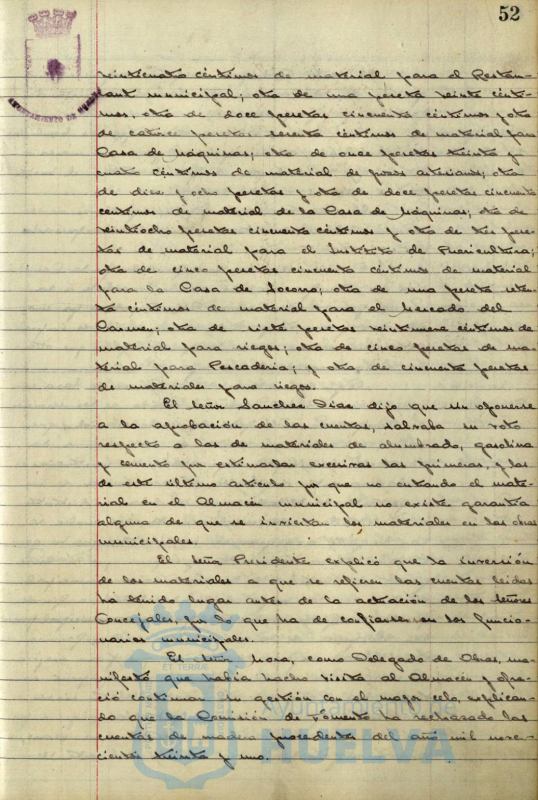 52
AYUNTAMIENTO DE HUELVA
veinticuatro céntimos de material para el Restau-
rant municipal; otra de una peseta veinte cénti-
mos, otra de doce pesetas cincuenta céntimos y otra
de catorce pesetas sesenta céntimos de material para
Casa de Máquinas; otra de once pesetas treinta y
cuatro céntimos de material de pozos artesianos; otra
de diez y ocho pesetas y otra de doce pesetas cincuenta
centimos de material de la Casa de Máquinas; otra de
veintiocho pesetas cincuenta céntimos y otra de tres pese-
tas de material para el Instituto de Puericultura;
otra de cinco pesetas cincuenta céntimos de material
para la Casa de Socorro; otra de una peseta seten-
ta céntimos de material para el Mercado del
Carmen; otra de siete pesetas veintinueve céntimos de
material para riegos; otra de cinco pesetas de ma-
terial para Pescadería; y otra de cincuenta pesetas
de materiales para riegos.
El Señor Sanchez Diaz dijo que sin oponerse
a la aprobación de las cuentas, salvaba su voto
respecto a las de materiales de alumbrado, gasolina
y cemento por estimarlas excesivas las primeras, y las
de este último artículo por que no entrando el mate-
rial en el Almacén municipal no existe garantía
alguna de que se inviertan los materiales en las obras
municipales.
El Señor Presidente explicó que la inversión
de los materiales a que se refieren las cuentas leidas
ha tenido lugar antes de la actuación de los señores
Concejales, por lo que ha de confiarse en los funcio-
narios municipales.
El Señor Mora, como Delegado de Obras, ma-
nifestó que había hecho visita al Almacén y ofre-
ció continuar su gestión con el mayor celo, explican-
do que la Comisión de Fomento ha rechazado las
cuentas de madera procedentes del año mil nove-
cientos treinta y uno.
Ayuntamiento de
HUELVA